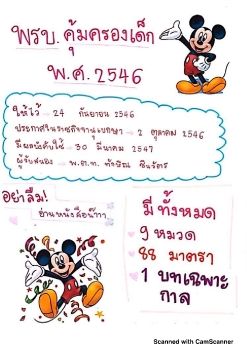 พรบ. คุ้มครองเด็ก
พ.ศ. 2546
ให้ไว้ → 24 กันยายน 2546
ประกาศในราชกิจจานุเบกษา → 2 ตุลาคม 2546
มีผลบังคับใช้ → 30 มีนาคม 2547
ผู้รับสนอง → พ.ต.ท. ทักษิณ ชินวัตร
อย่าลืม!
อ่านหนังสือน้าาา
มีทั้งหมด
9 หมวด
88 มาตรา
1 บทเฉพาะ
กาล
Scanned with CamScanner